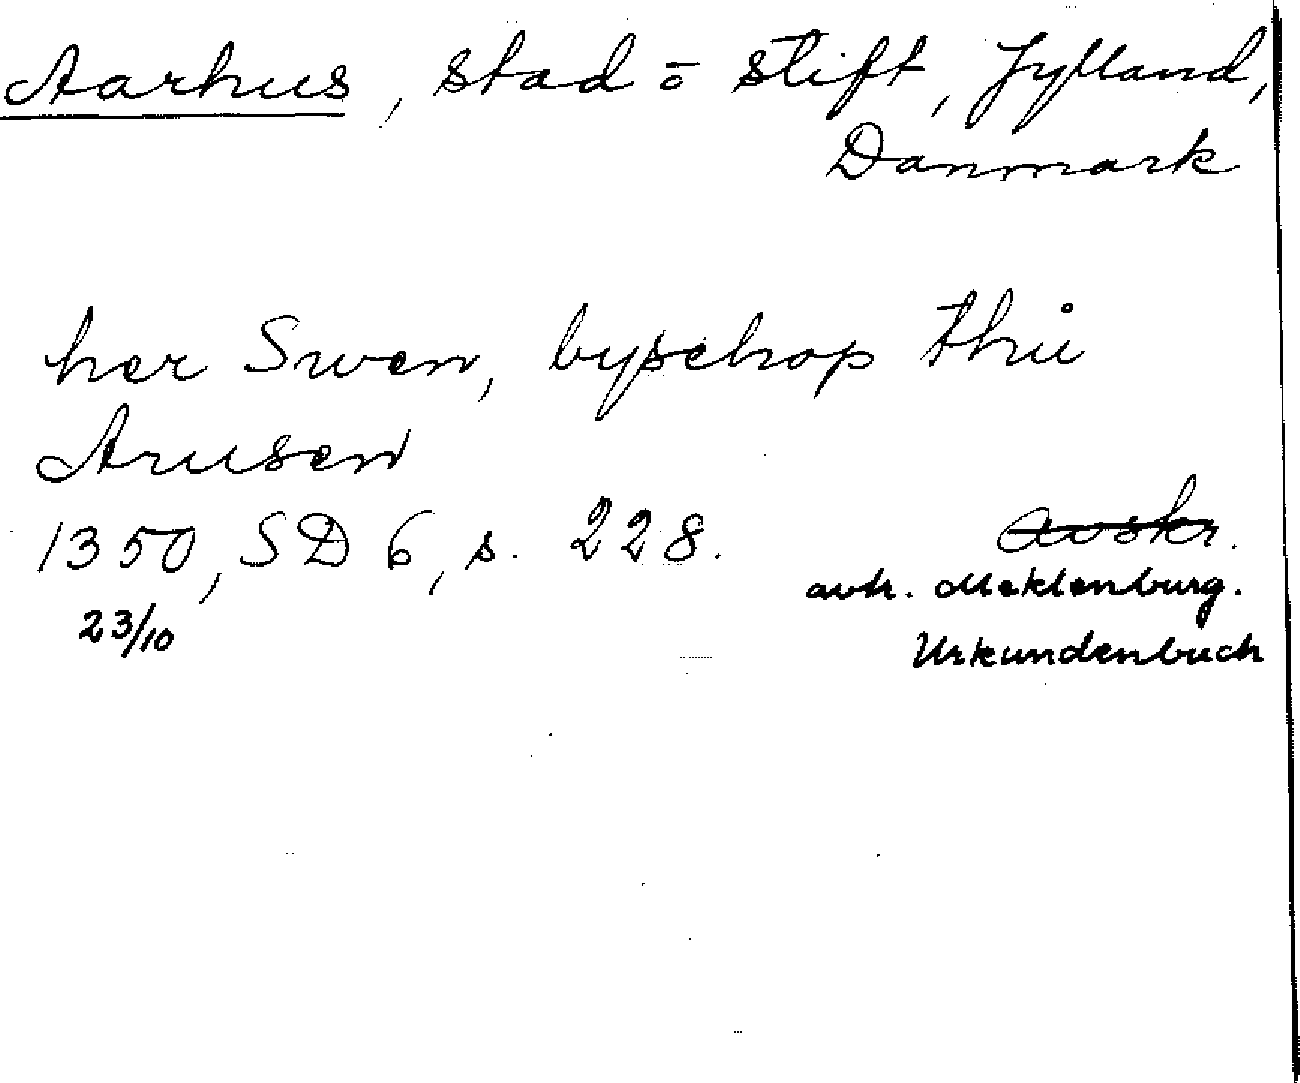 Aarhus, stad o stift, Jylland,
Danmark
her Swen, byschop thu̇
Arusen
1350, SD 6, s. 228.
avskr.
23/10
avtr. Meklenburg.
Urkundenbuch